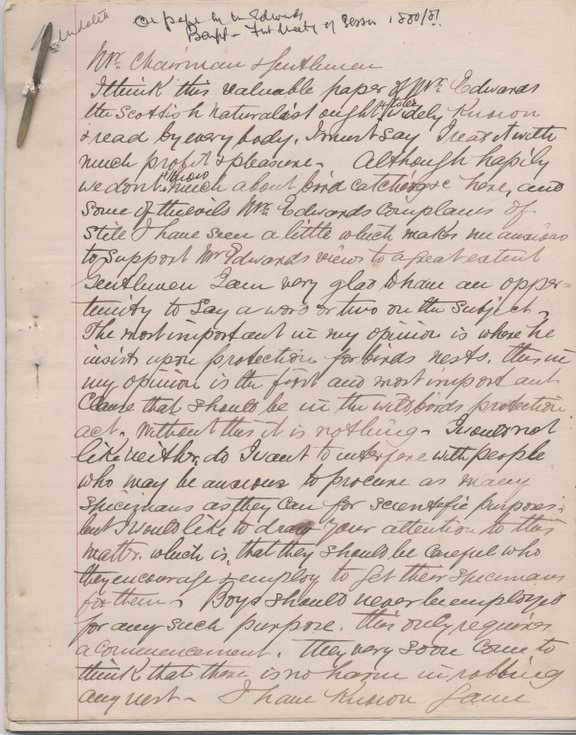 On paper by Mr Edwards
Banff - First Meety of Session 1880/81
Mr. Chairman & Gentlemen
I think this valuable paper of Mr. Edwards
the Scottish Naturalist ought to be widely Known
& read by every body. I must say I read it with
much profit & pleasure - Although hapily
we don't Know much about bird catching &c here, and
Some of the evils Mr. Edwards Complains of
Still I have seen a little which makes me anxious
to Support Mr Edwards views to a great extent
Gentlemen I am very glad to have an opper=
tunity to Say a word or two on the Subject -
The most important in my opinion is where he
insists upon protection for birds nests. this in
my opinion is the first and most important
Clause that should be in the wild birds protection
act. Without this it is nothing - I would not
like neither do I want to interfere with people
who may be anxious to procure as many
Specimans as they can for Scientific purposes,
but I would like to draw your attention to this
matter. which is, that they should be Careful who
they encourage & employ to get their Specimans
for them - Boys should never be employed
for any such purpose. this only requires
a Commencement. they very soon Come to
think that there is no harm in robbing
any nest - I have Known Game